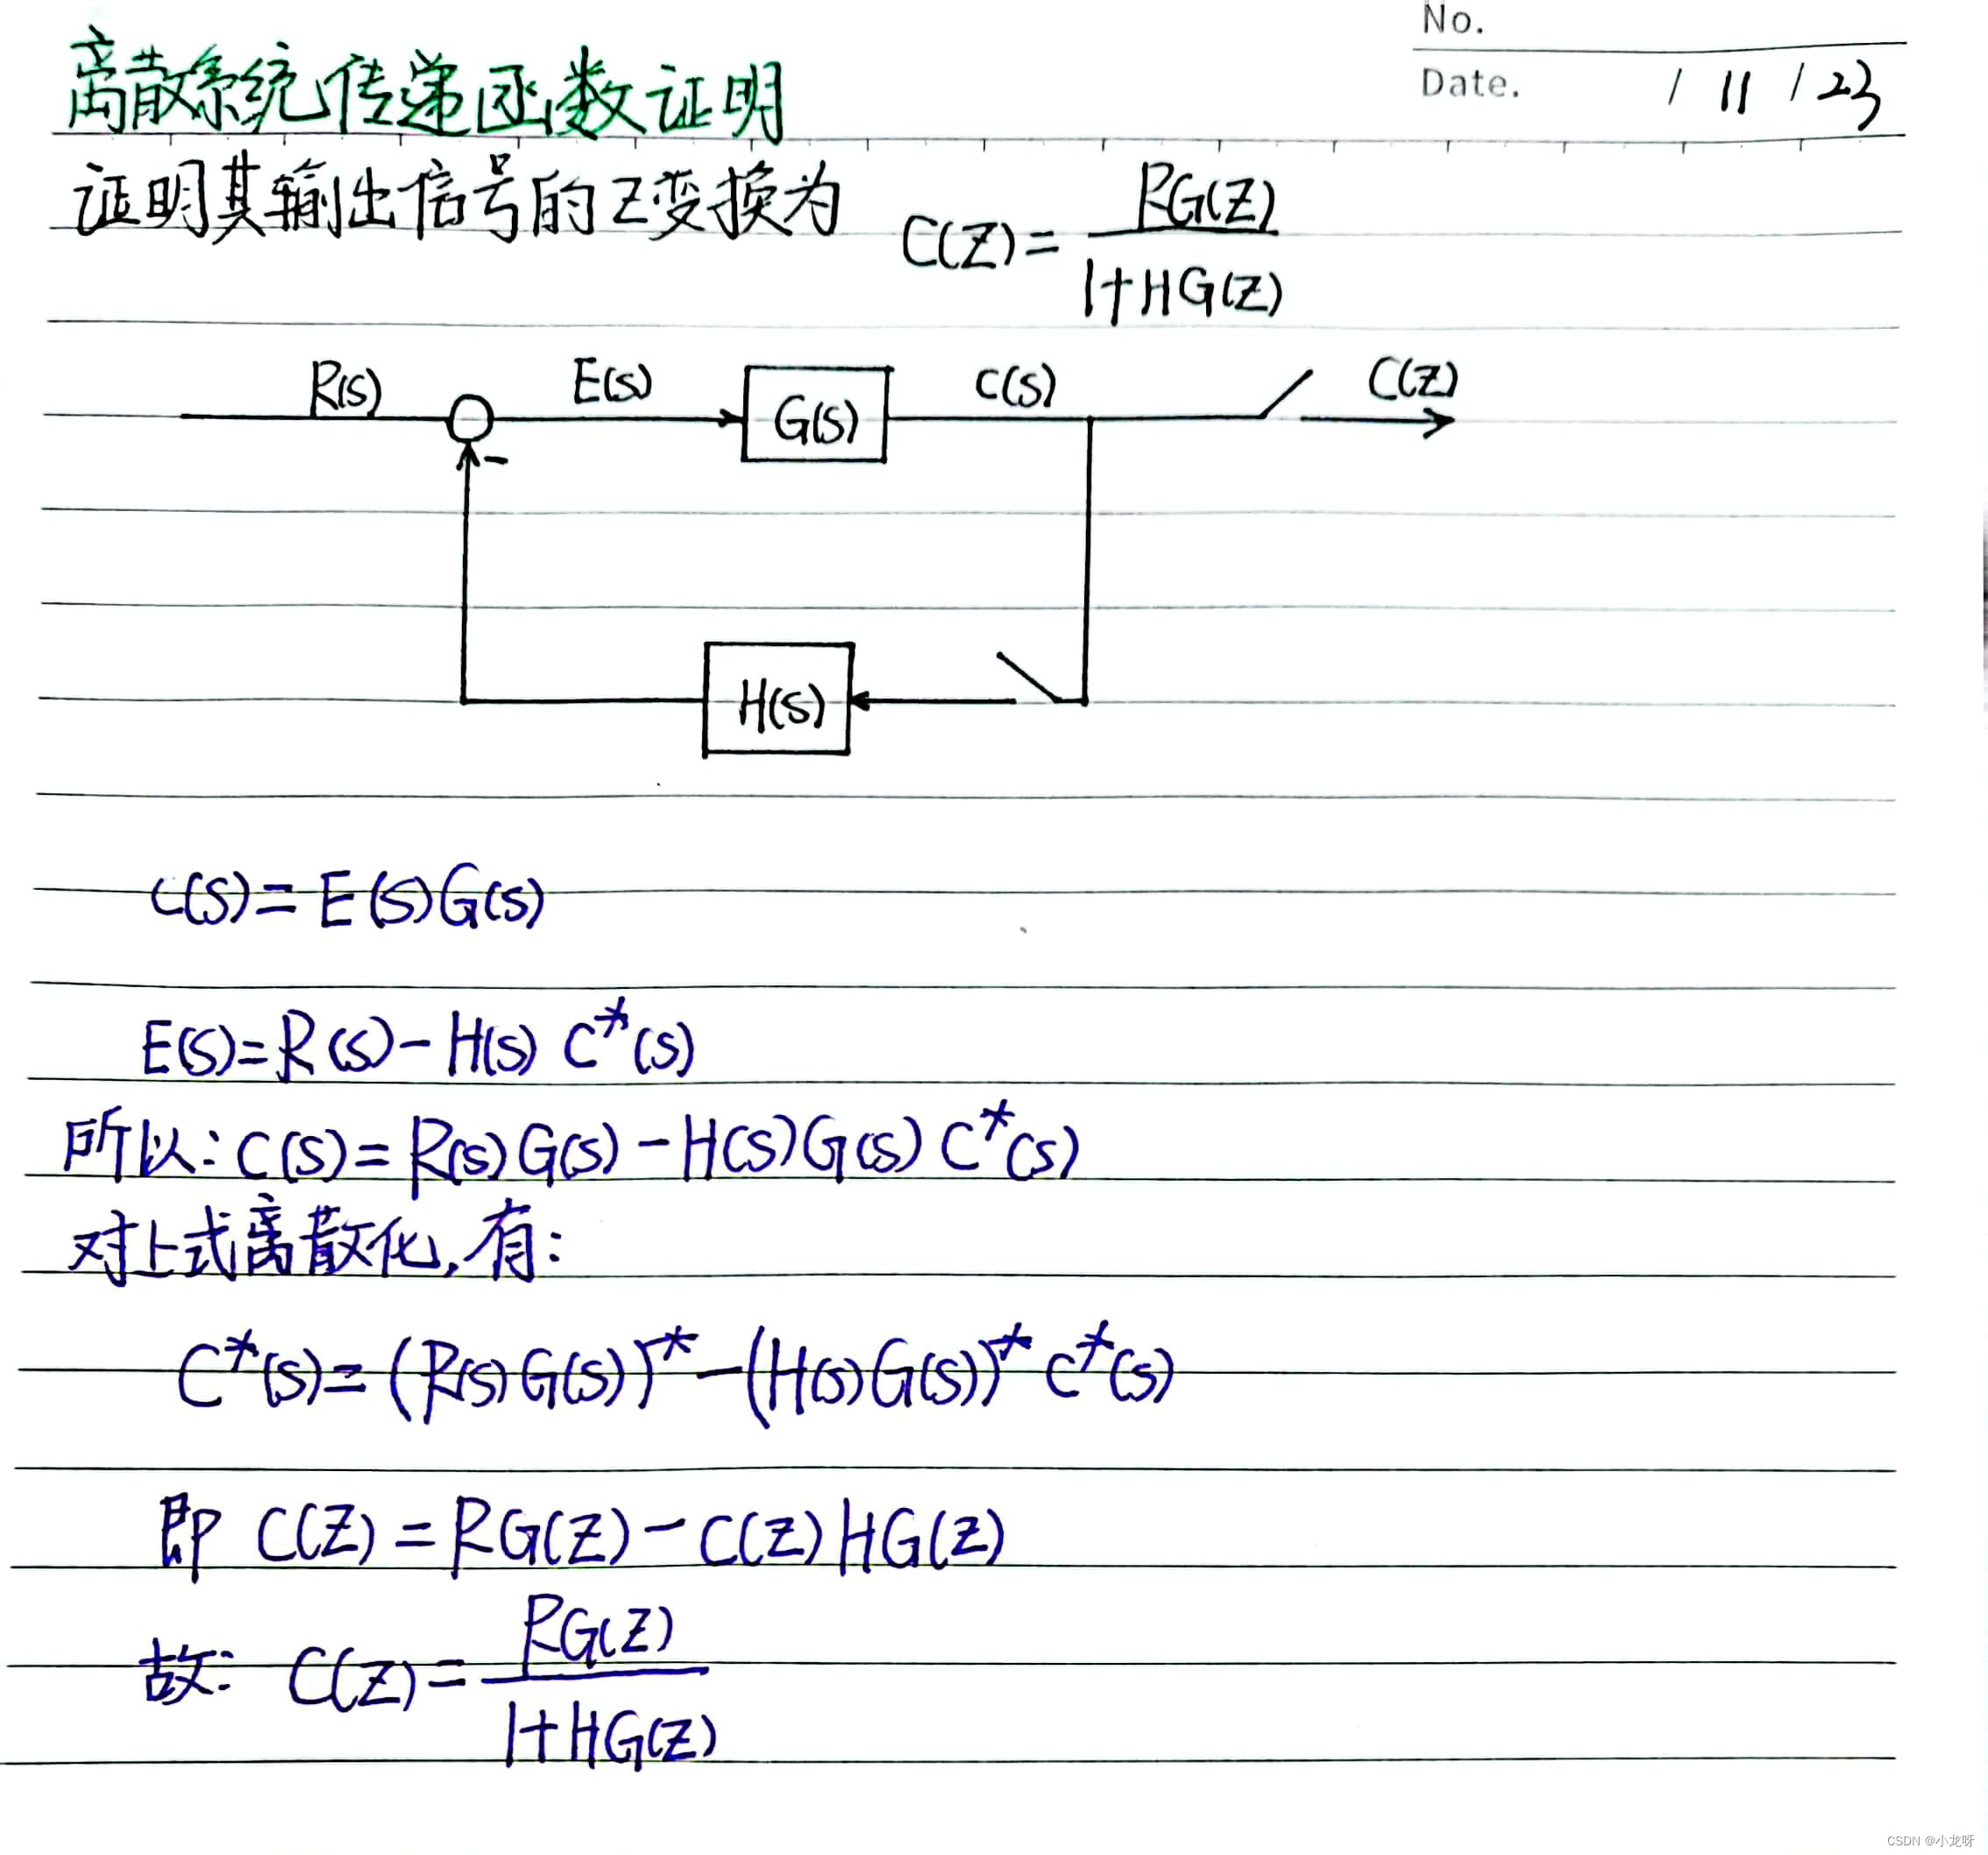 No.
Date. / 11 / 23
离散系统传递函数证明
证明其输出信号的Z变换为 C(Z)= RG(Z)
1+HG(Z)
R(S) E(S) G(S) C(S) C(Z)
-
H(S)
C(S)=E(S)G(S)
E(S)=R(S)-H(S) C*(S)
所以:C(S)=R(S)G(S)-H(S)G(S)C*(S)
对上式离散化,有:
C*(S)=(R(S)G(S))*-(H(S)G(S))*C*(S)
即 C(Z)=RG(Z)-C(Z)HG(Z)
故: C(Z)= RG(Z)
1+HG(Z)
CSDN @小龙呀